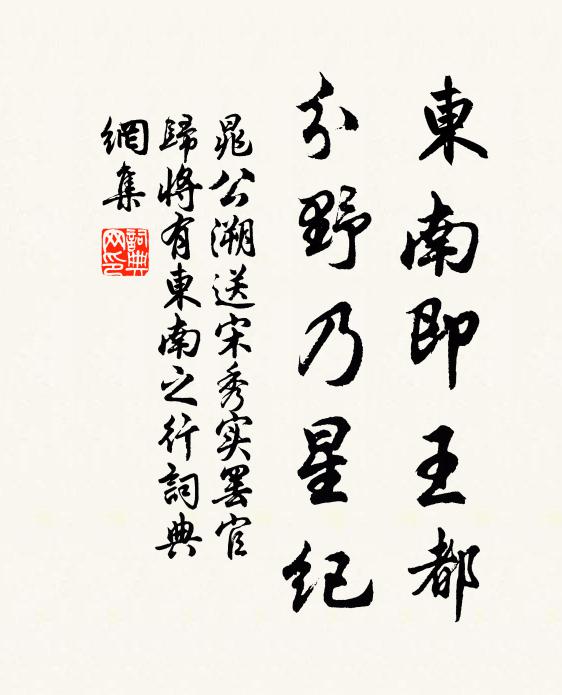 東南即王都
分野乃星纪
晁公溯送宋秀实罢官
歸將有東南之行詞典
網集
詞典
网印